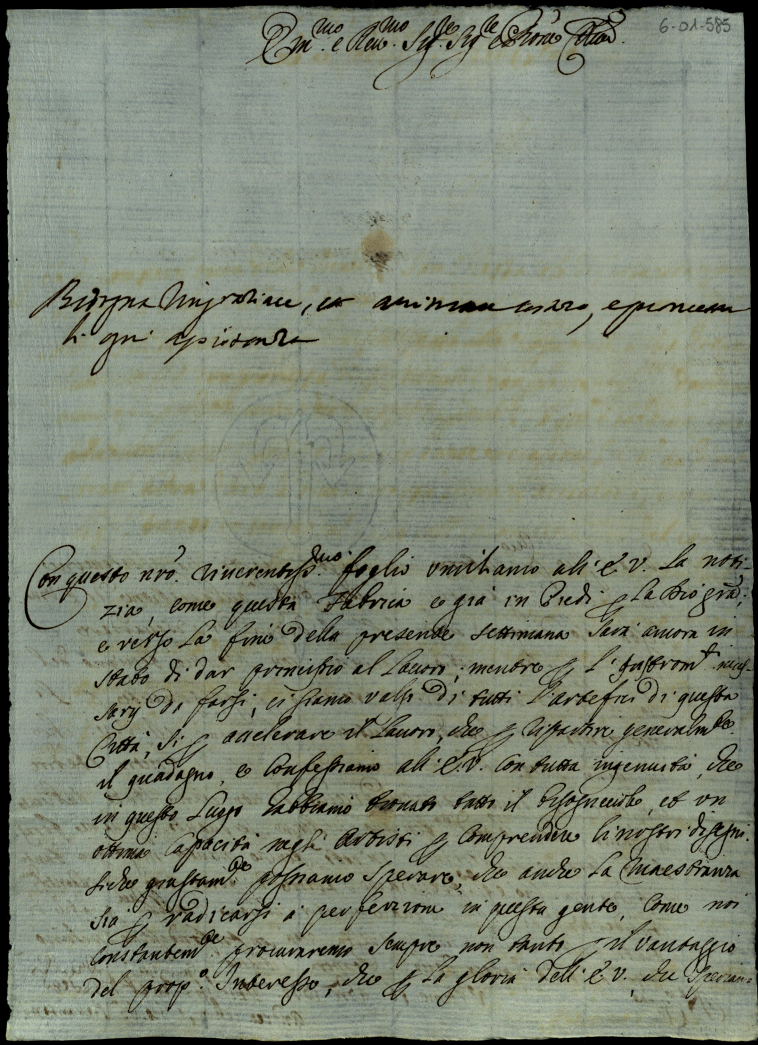 6-01-585
Em.mo e Rev.mo Sig.re Sig.re e Pron̄e Col.mo
Bisogna ringratiare, et animare costoro, e
di ogni assistenza
Con questo nrō. riuerentiss.mo foglio umiliamo all' E.V. La noti-
zia, come questa Fabrica è già in Piedi p La Dio grā,
e verso La fine della presente settimana sarà ancora in
stato di dar principio al Lauoro; mentre p L'Instrom.ti neces-
sarij da farsi, ci siamo valsi di tutti L'artefici di questa
Città, sì p accelerare il Lauoro, che p ripartire generalm.te
il guadagno, e Confessiamo all' E.V. con tutta ingenuità, che
in questo Luogo habbiamo trouato tutto il bisogneuole, et un
ottima Capacità negli Artisti p Comprendere li nostri disegni.
Siche giustam.te possiamo sperare, che anche La Maestranza
sia p radicarsi a perfezione in questa gente, Come noi
Constantem.te procuraremo sempre non tanto p il vantaggio
del prop.o Interesse, che p La gloria dell' E.V., che